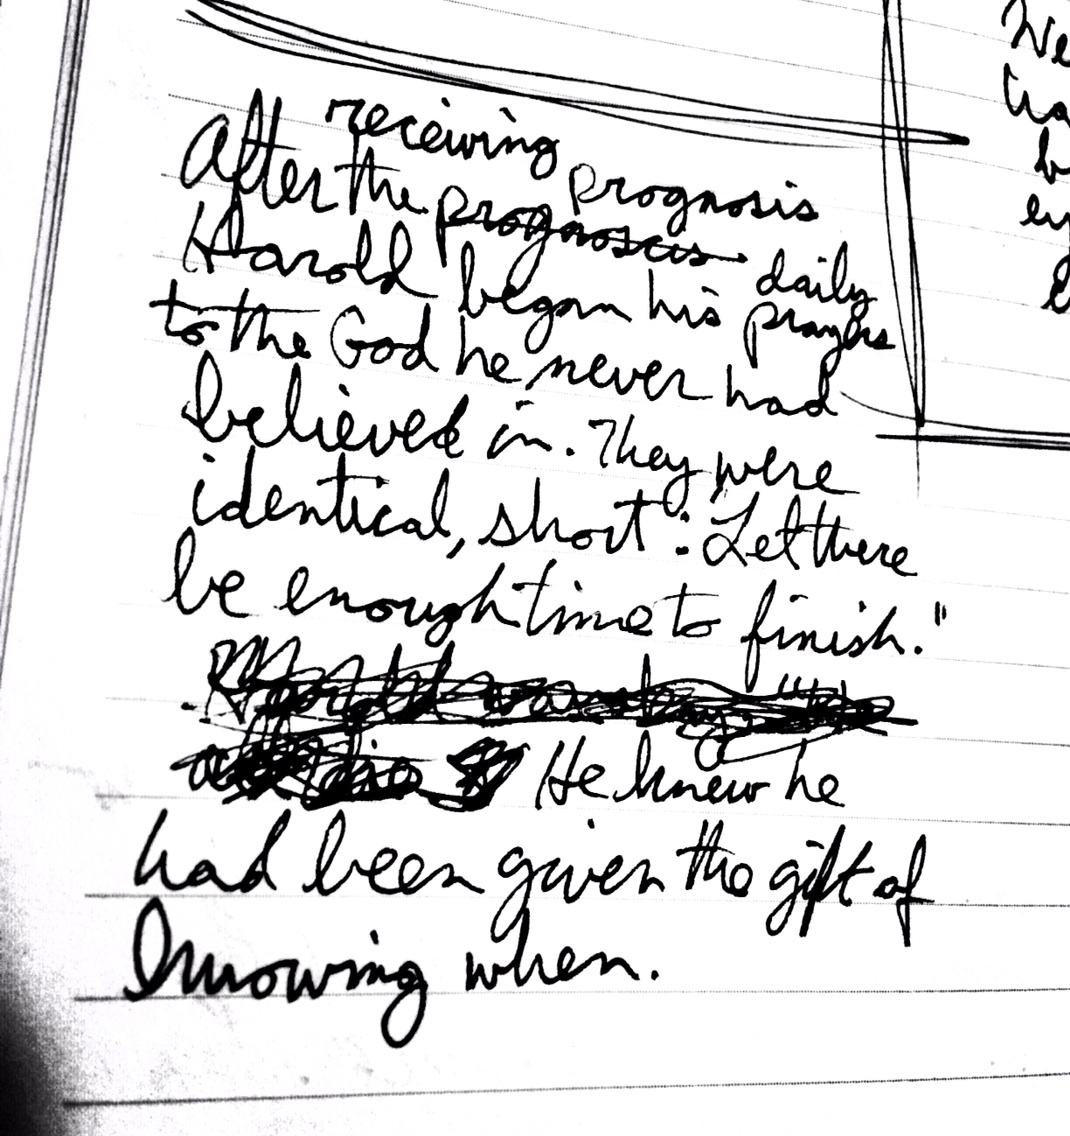 receiving
After the prognosis
prognoscis
Harold began his daily prayers
to the God he never had
believed in. They were
identical, short: Let there
be enough time to finish."
He knew he
had been given the gift of
knowing when.
We